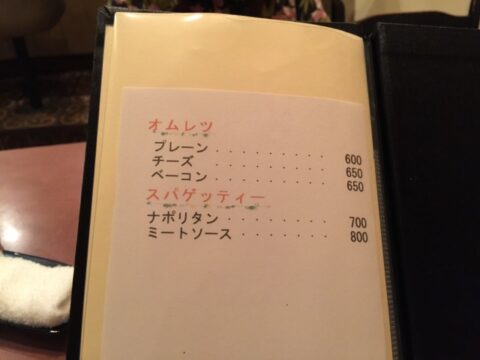 オムレツ
プレーン . . . . . . . . . . 600
チーズ . . . . . . . . . . 650
ベーコン . . . . . . . . . . 650
スパゲッティー
ナポリタン . . . . . . . . . 700
ミートソース . . . . . . . . 800